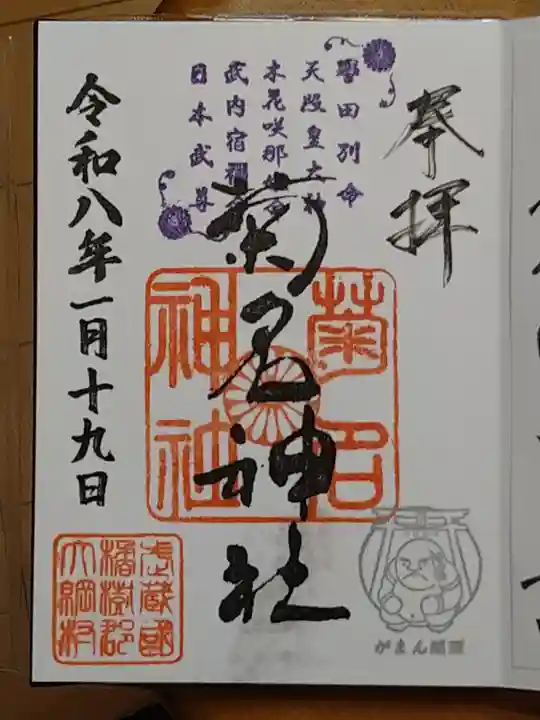 奉拝
誉田別命
天照皇大神
木花咲耶姫命
武内宿禰命
日本武尊
菊名神社
菊名
神社
令和八年一月十九日
武蔵國
橘樹郡
大綱村
がまん様